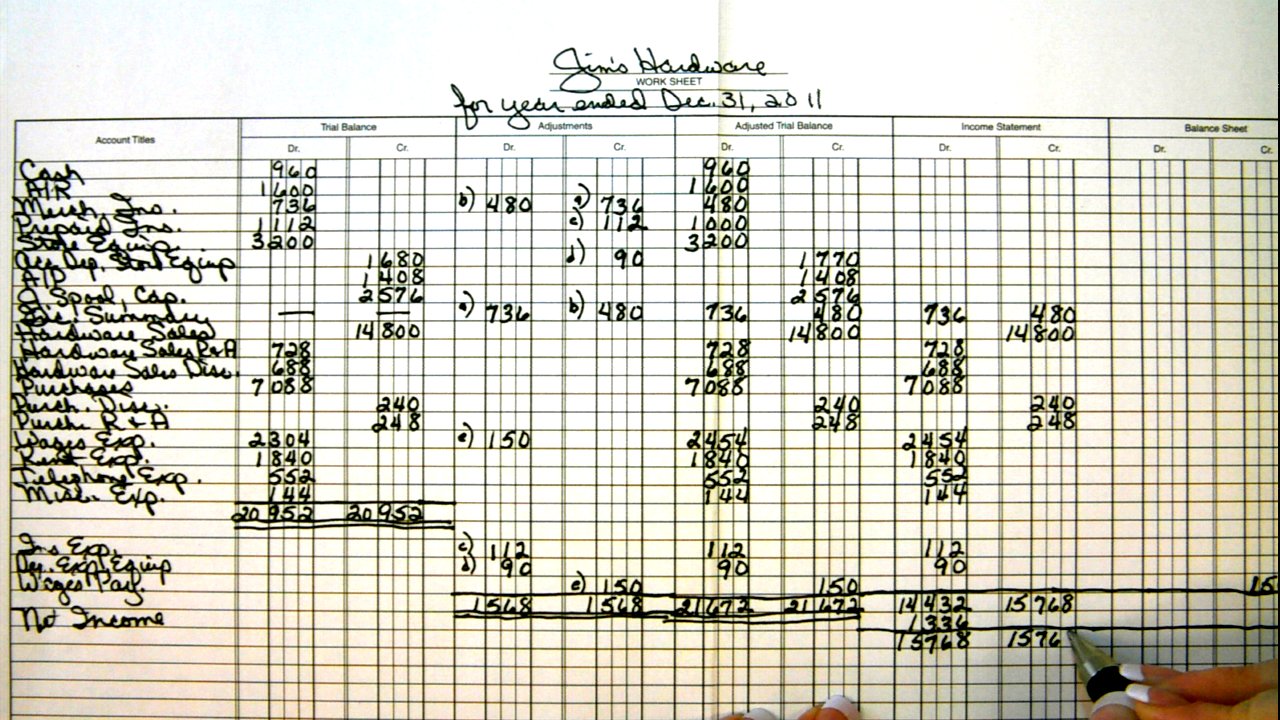 Jim's Hardware
WORK SHEET
for year ended Dec. 31, 2011
Account Titles Trial Balance Adjustments Adjusted Trial Balance Income Statement Balance Sheet
Dr. Cr. Dr. Cr. Dr. Cr. Dr. Cr. Dr. Cr.
Cash 960 960
A/R 1600 1600
Merch. Ins. 736 b) 480 a) 736 480
Prepaid Ins. 1112 c) 112 1000
Store Equip. 3200 3200
Acc. Dep. Store Equip 1680 d) 90 1770
A/P 1408 1408
J. Spool, Cap. 2576 2576
Inc. Summary — — a) 736 b) 480 736 480 736 480
Hardware Sales 14800 14800 14800
Hardware Sales R+A 728 728 728
Hardware Sales Disc. 688 688 688
Purchases 7088 7088 7088
Purch. Disc. 240 240 240
Purch. R + A 248 248 248
Wages Exp. 2304 e) 150 2454 2454
Rent Exp. 1840 1840 1840
Telephone Exp. 552 552 552
Misc. Exp. 144 144 144
20952 20952
Ins Exp. c) 112 112 112
Dep. Exp. Equip d) 90 90 90
Wages Pay. e) 150 150 15
1568 1568 21672 21672 14432 15768
Net Income 1336
15768 1576